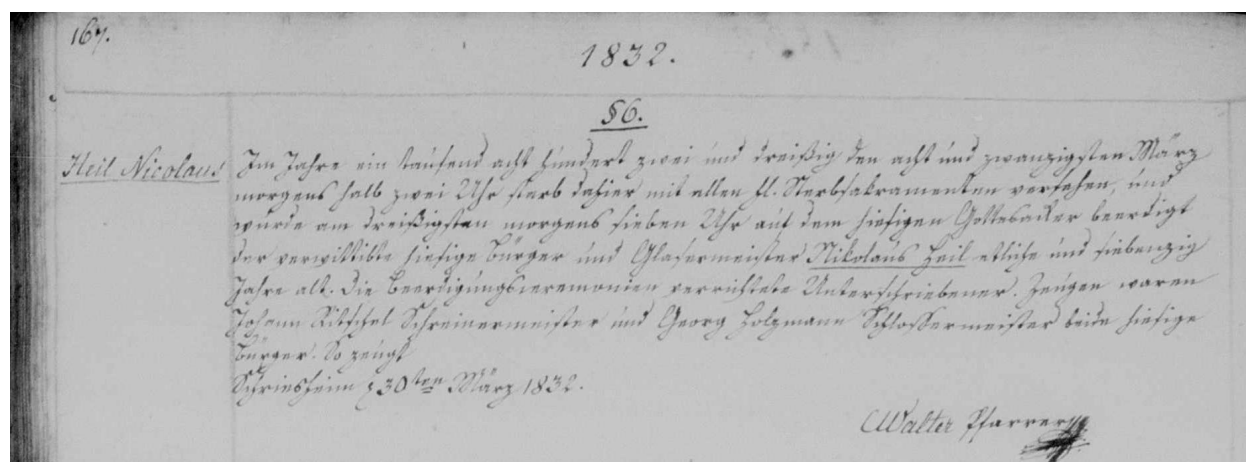 167.
1832.
§6.
Heil Nicolaus
Im Jahre ein tausend acht hundert zwei und dreißig den acht und zwanzigsten März
morgens halb zwei Uhr starb dahier mit allen hl. Sterbsakramenten versehen, und
wurde am dreißigsten morgens sieben Uhr auf dem hiesigen Gottesacker beerdigt
der verwittibte hiesige Bürger und Glasermeister Nikolaus Heil etliche und siebenzig
Jahre alt. Die Beerdigungsceremonien verrichtete Unterschriebener. Zeugen waren
Johann Ritschel Schreinermeister und Georg Holzmann Schlossermeister beide hiesige
Bürger. So zeugt
Schriesheim 30ten März 1832.
Walter Pfarrer